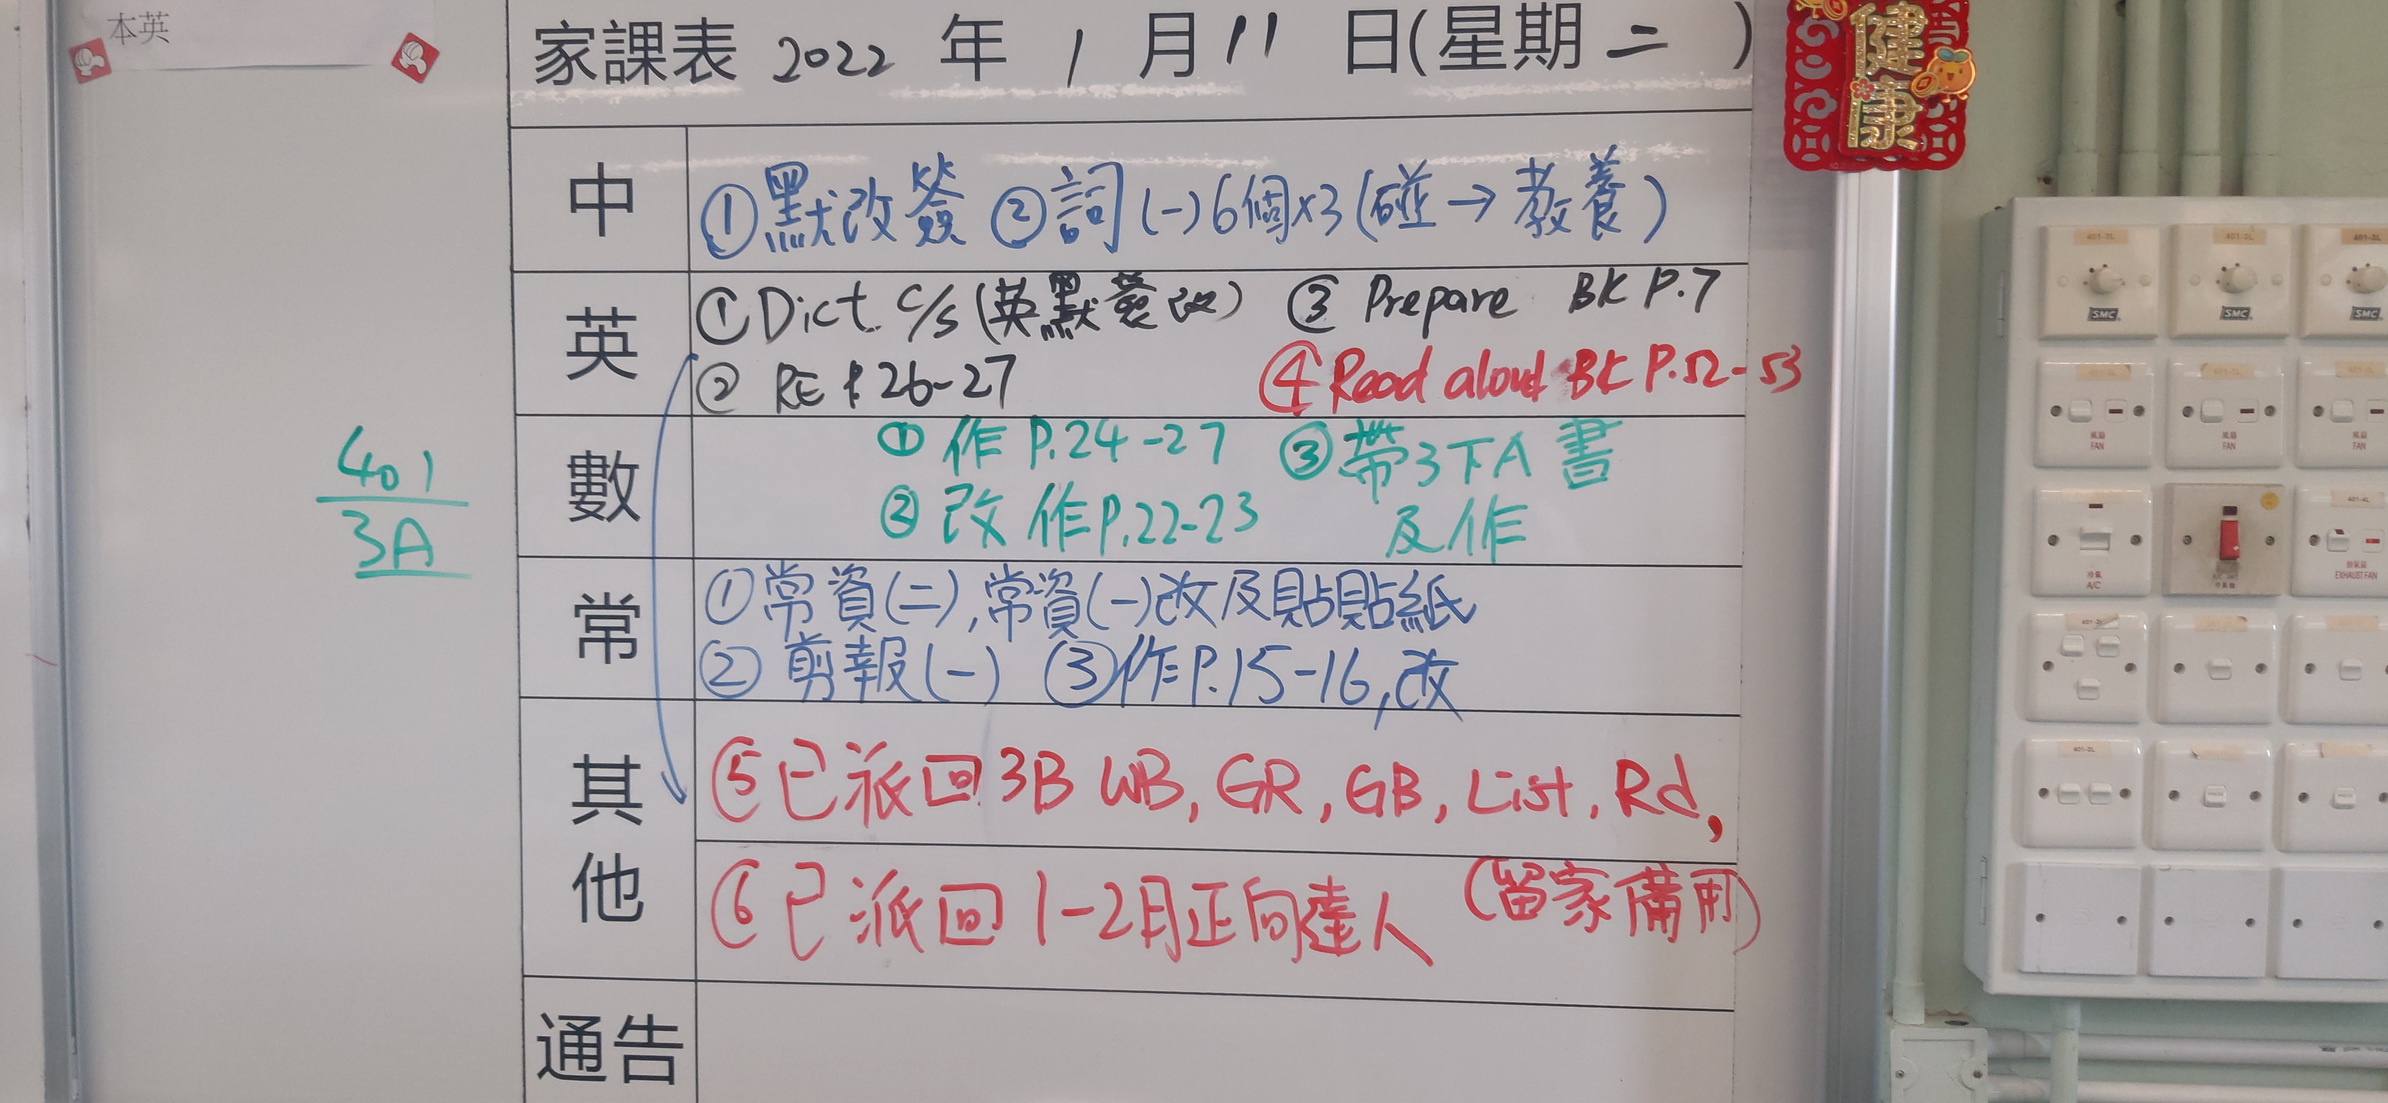 本英
家課表 2022 年 1 月 11 日(星期二)
健
康
中 ①默改簽 ②詞(一)6個x3(碰→教養)
英 ①Dict. c/s (英默簽改) ③ Prepare BK P.7
② RE P.26-27 ④Read aloud BK P.52-53
數 ① 作 P.24-27 ③帶3下A書
② 改作P.22-23 及作
401
3A
常 ①常資(二),常資(一)改及貼貼紙
② 剪報(一) ③作P.15-16,改
其他 ⑤已派回3B WB, GR, GB, List, Rd,
⑥已派回1-2月正向達人 (留家備用)
通告
401-3L 401-3L 401-3L
SMC SMC SMC
風扇 風扇 風扇
FAN FAN FAN
401-4L
冷氣
A/C
EXHAUST FAN
401-2L